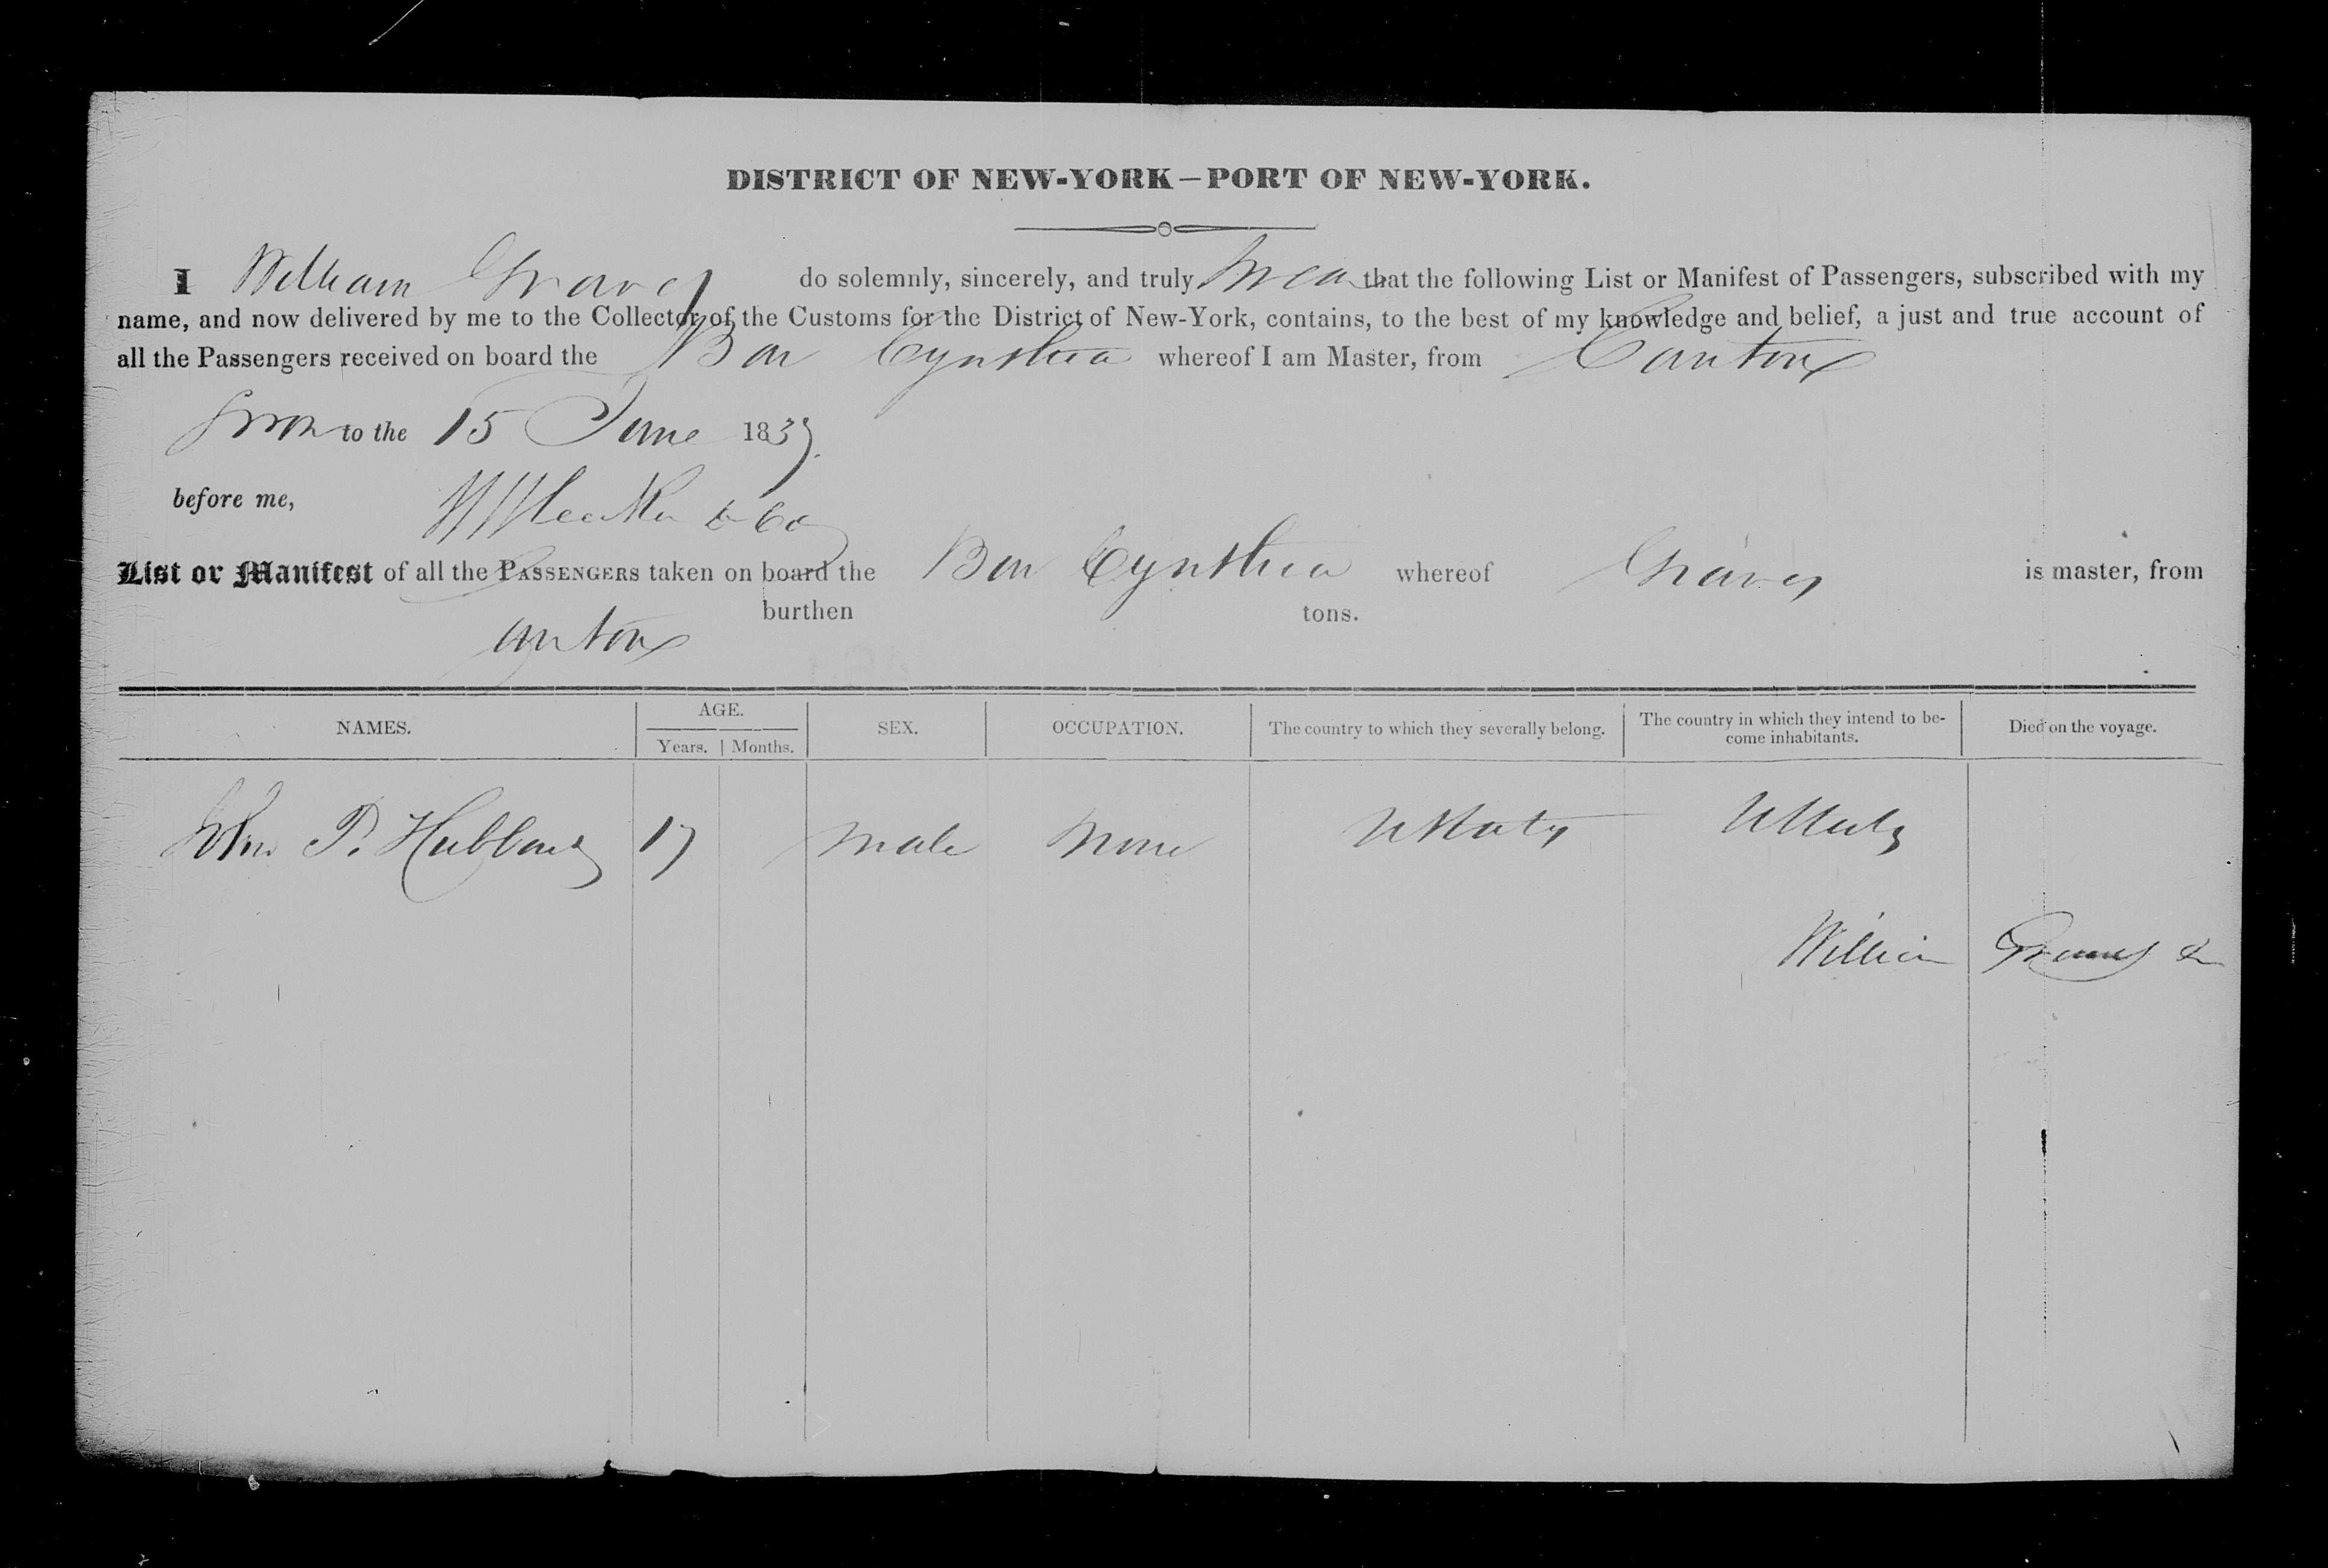 DISTRICT OF NEW-YORK—PORT OF NEW-YORK.
I William Graves do solemnly, sincerely, and truly swear that the following List or Manifest of Passengers, subscribed with my
name, and now delivered by me to the Collector of the Customs for the District of New-York, contains, to the best of my knowledge and belief, a just and true account of
all the Passengers received on board the Bar Cynthia whereof I am Master, from Canton
Sworn to the 15 June 1837.
before me,
List or Manifest of all the PASSENGERS taken on board the Bar Cynthia whereof Graves is master, from
Canton burthen tons.
NAMES. AGE. SEX. OCCUPATION. The country to which they severally belong. The country in which they intend to be-
come inhabitants. Died on the voyage.
Years. Months.
P. Hubbard 17 male None UStates UStates
William Graves